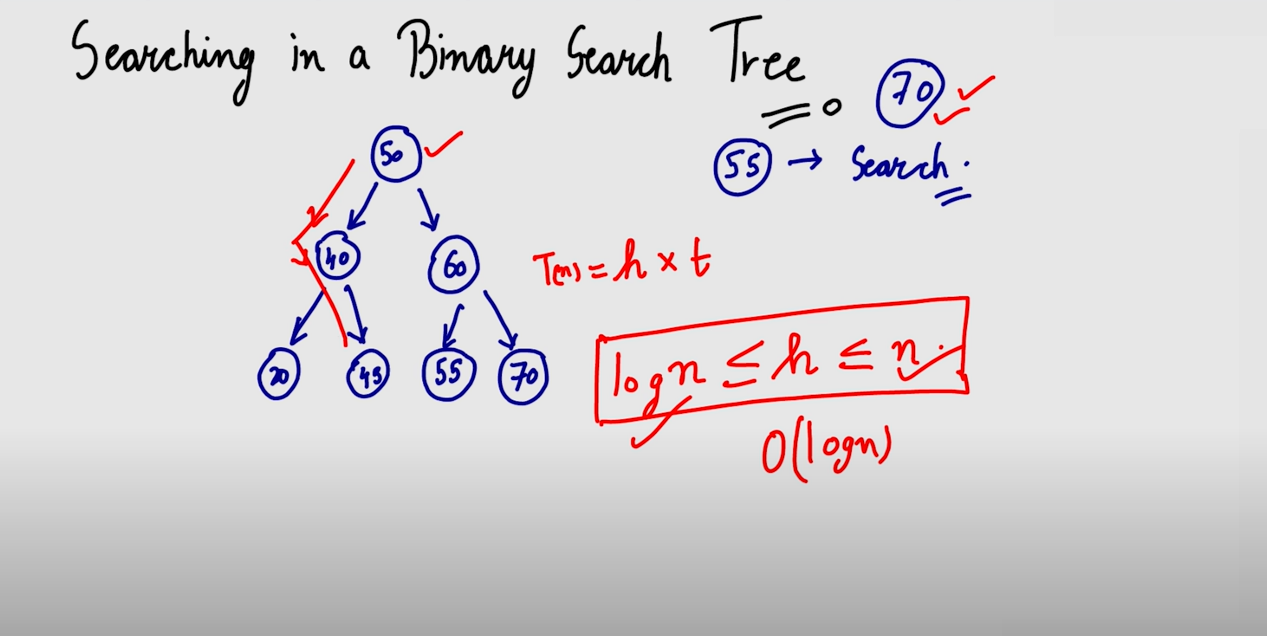 Searching in a Binary Search Tree
70
55 → Search.
50
40 60
T(n) = h × t
20 45 55 70
log n ≤ h ≤ n.
O(logn)